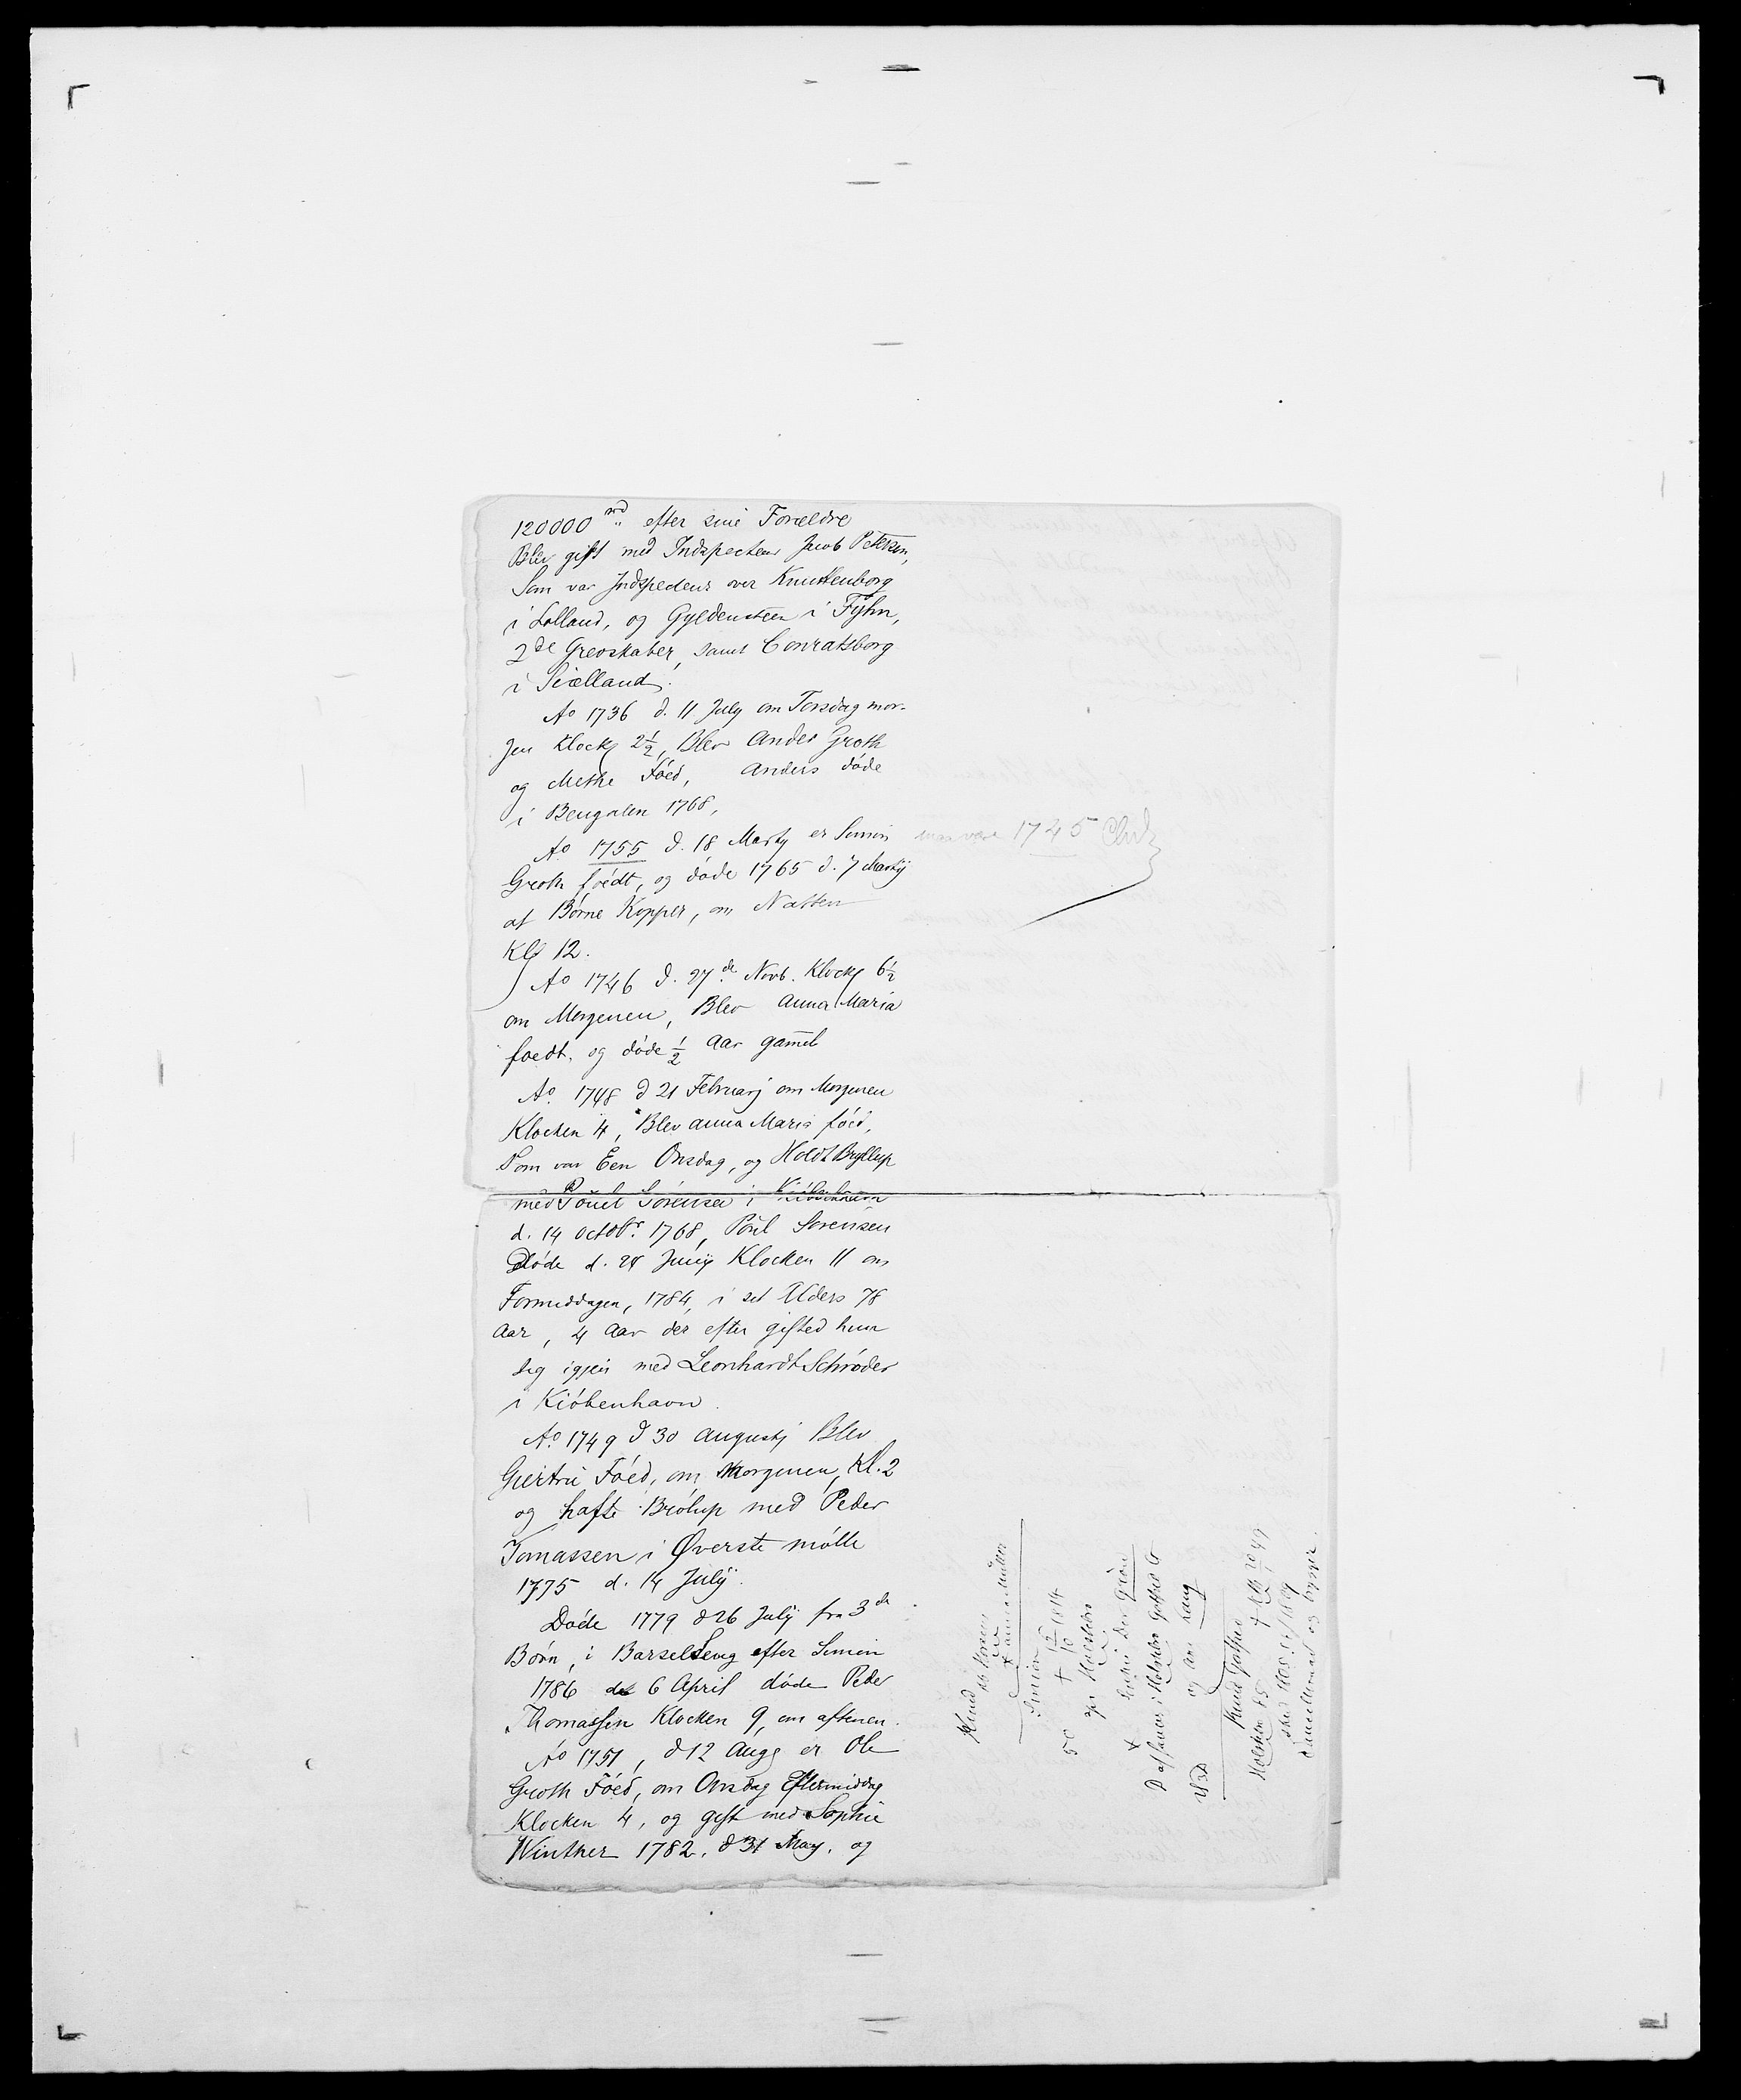 120000 rd. efter sine Forældre
Blev gift med Indspecteur Jacob Petersen,
Som var Indspecteur over Knuttenborg
i Lolland, og Gyldensteen i Fyhn,
2de Grevskaber, samt Conratsborg
i Siælland.
Ao 1736 d. 11 July om Torsdag mor-
gen Klock 2½, Blev Ander Groth
og Methe Föed, Anders döde
i Bengalen 1768,
Ao 1755 d. 18 Marty er Simon
maa være 1745
Groth foedt, og döde 1765 d. 7 Martij
af Börne Kopper, om Natten
Kl 12.
Ao 1746 d. 27de Novb. Klock 6½
om Morgenen, Blev Anna Maria
foedt, og döde ½ Aar gammel
Ao. 1748 d 21 Februarj om Morgenen
Klocken 4, Blev Anna Maria föed,
Som var Een Onsdag, og Holdt Bryllup
med Pouel Sörensen i Kiöbenhavn
d. 14 octobr. 1768, Poul Sorensen
Döde d. 28 Junij Klocken 11 om
Formiddagen, 1784, i sit Alders 78
Aar, 4 Aar der efter gifted hun
sig igjen med Leonhardt Schröder
i Kiöbenhavn.
Ao. 1749 d 30 Augustj Blev
Giertru Föed, om Morgenen, Kl. 2
og hafte Brölup med Peder
Tomassen i Øverste mölle
1775 d. 14 Julij.
Döde 1779 d 26 Julij fra 3de
Börn, i Barselseng efter Simon
1786 de 6 April döde Peder
Thomassen Klocken 9, om aftenen.
Ao 1751, d 12 Augg er Ole
Groth Föed, om Onsdag Eftermiddag
Klocken 4, og gift med Sophie
Winther 1782. d 31 May. og
Knud
Simon
† 12/10 1814
Holstebro
i Holstebro Gotfred G
og
Knud Gotfred
og bygger.